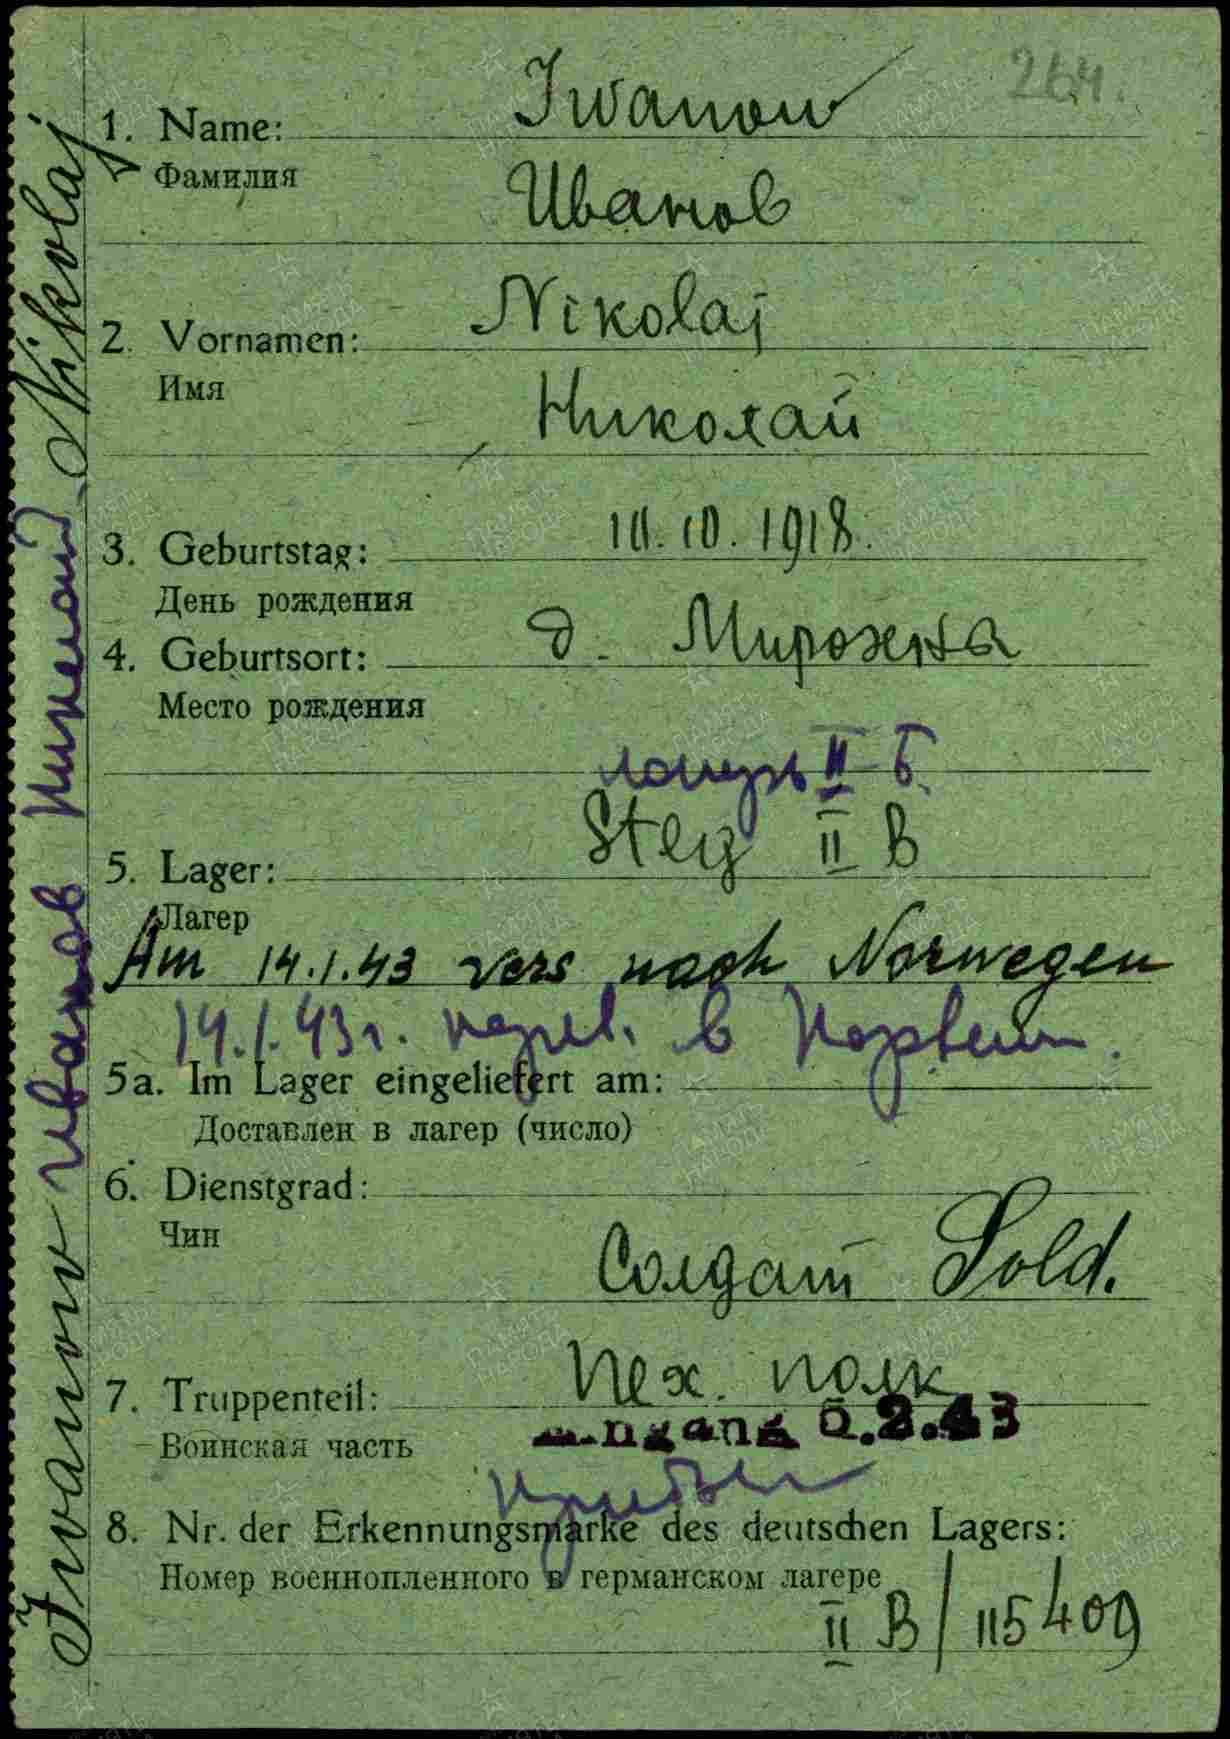 264.
1. Name: Iwanow
Фамилия
Иванов
2. Vornamen: Nikolaj
Имя
Николай
3. Geburtstag: 10.10.1918.
День рождения
4. Geburtsort: д. Мирохна
Место рождения
лагерь II Б.
5. Lager: Stlg II B
Лагерь
Am 14.1.43 vers nach Norwegen
14.1.43г. перев. в Норвегию.
5a. Im Lager eingeliefert am:
Доставлен в лагер (число)
6. Dienstgrad:
Чин
Солдат Sold.
7. Truppenteil: Пех. полк
Воинская часть
2.43
прибыл
8. Nr. der Erkennungsmarke des deutschen Lagers:
Номер военнопленного в германском лагере
II B/115409
Iwanow Иванов Николай Nikolaj